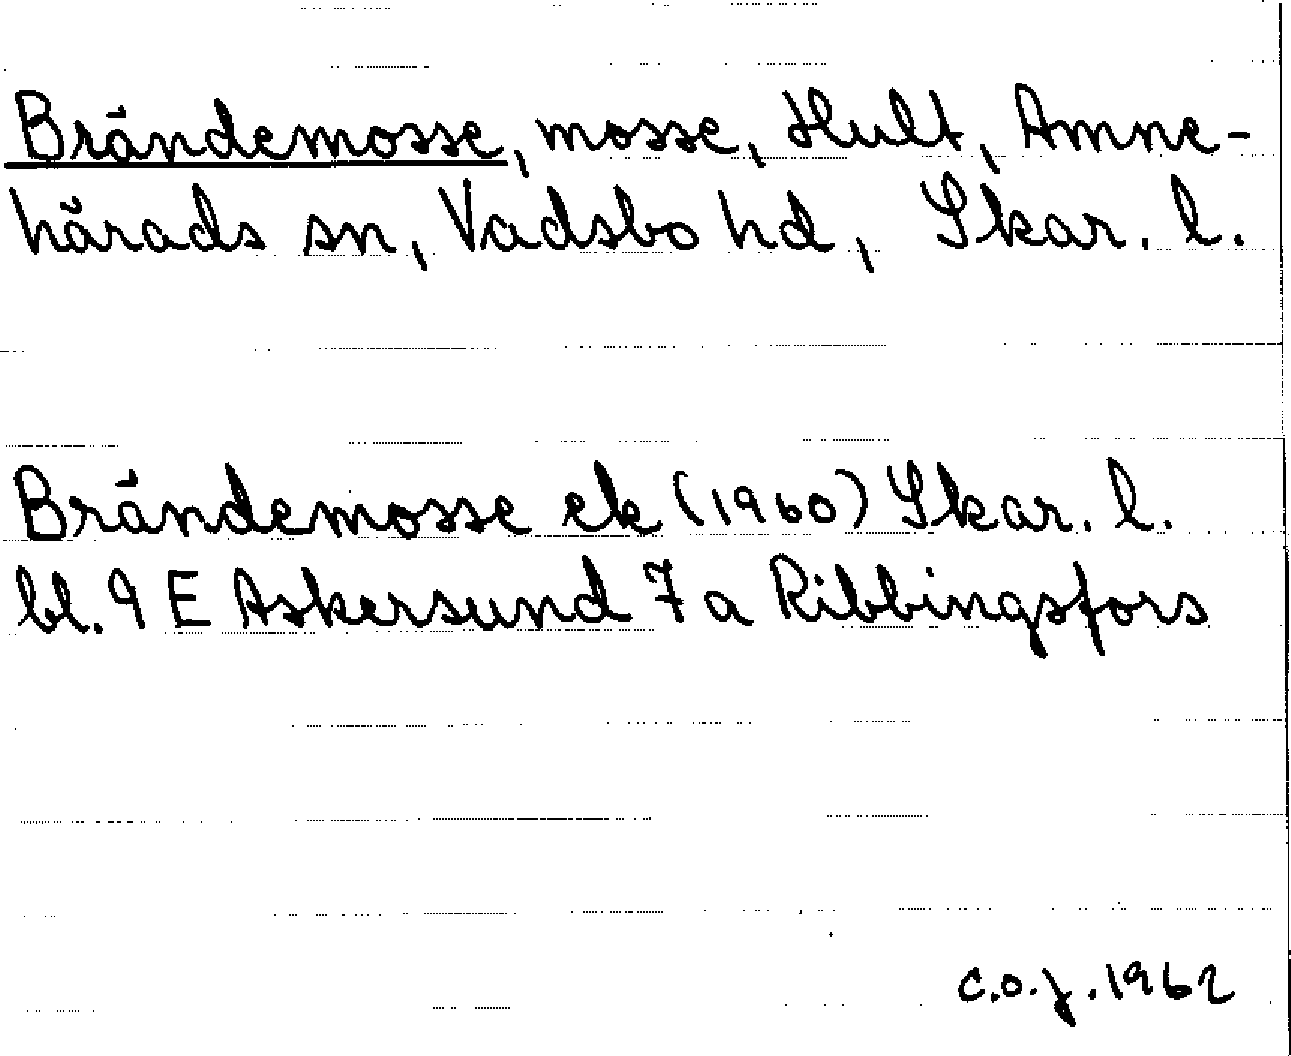 Brändemosse, mosse, Hult, Amne-
härads sn, Vadsbo hd, Skar. l.
Brändemosse ek (1960) Skar. l.
bl. 9 E Askersund 7 a Ribbingsfors
C.O.J. 1962